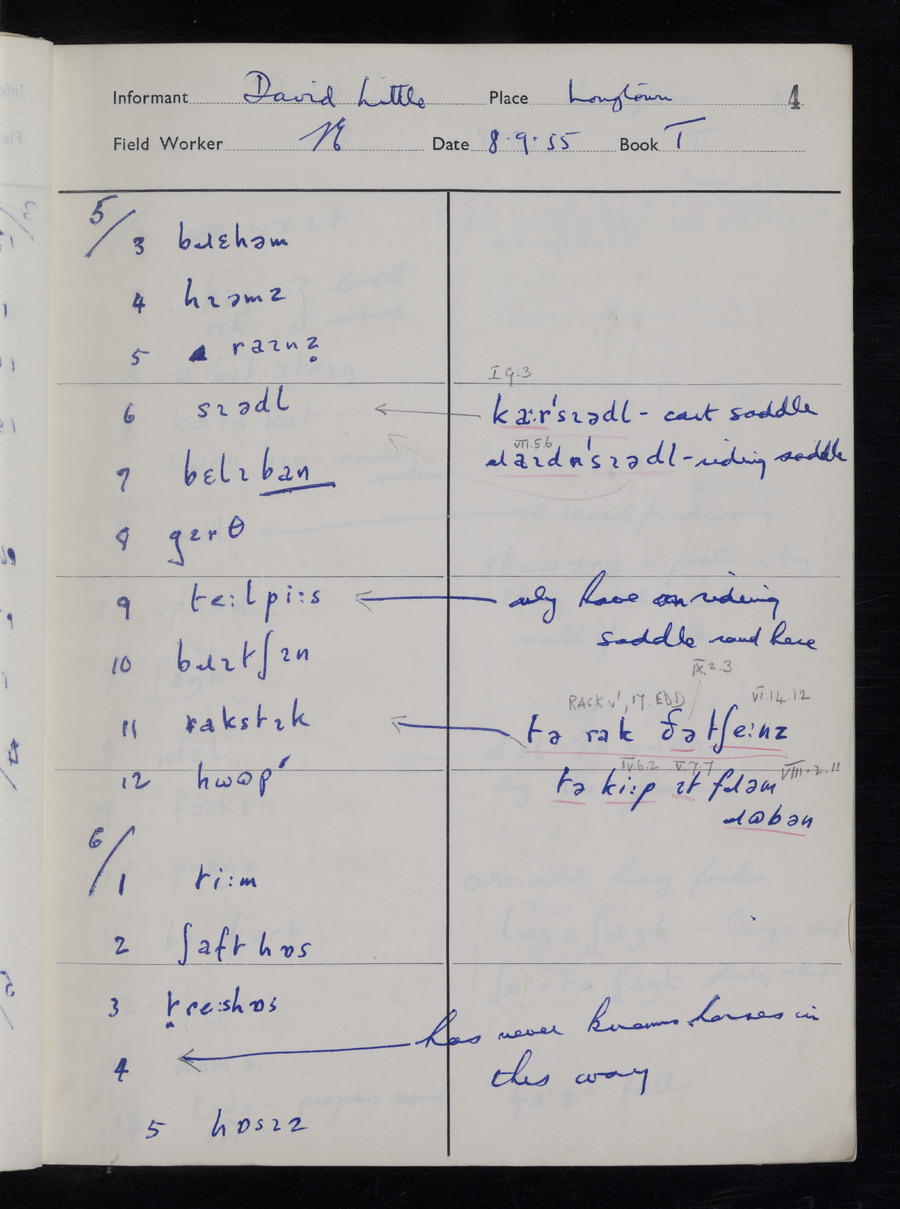 Informant David Little Place Longtown 4
Field Worker Date 8.9.55 Book I
5/
3 bɹɛhəm
4 hɪəmz
5 raɪnz̥
I.9.3
6 sɪədl kaːr'sɪədl - cart saddle
VII.5.6
ɹaɪdn'sɪədl - riding saddle
7 bɛlɪban
8 gɪrθ
9 teːlpiːs only have on riding
saddle round here
10 bɹɪtʃɪn
IX.2.3
RACK v¹, 17. EDD VI.14.12
11 rakstɪk tə rak ðə tʃeːnz
IV.6.2 V.7.7 VIII.2.11
12 hwɒp tə kiːp ɪt fɹəm
ɹɒbən
6/
1 tiːm
2 ʃaft hɒs
3 treːshɒs
has never known horses in
4 this way
5 hɒsɪz